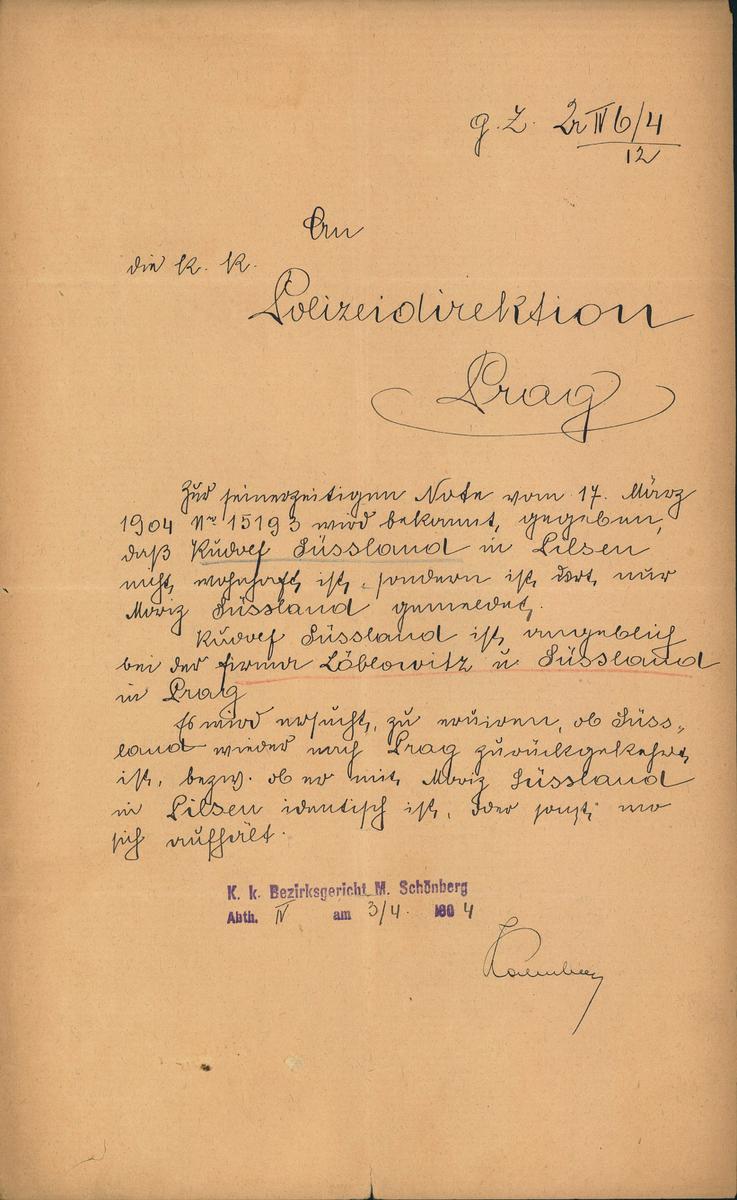 g. Z. Zr IV 6/4
12
An
die k. k.
Polizeidirektion
Prag
Zur seinerzeitigen Note vom 17. März
1904 Nr 15193 wird bekannt gegeben,
daß Rudolf Süssland in Pilsen
nicht wohnhaft ist, sondern ist dort nur
Moriz Süssland gemeldet.
Rudolf Süssland ist angeblich
bei der Firma Löblowitz u Süssland
in Prag
Es wird ersucht, zu eruiren, ob Süss-
land wieder nach Prag zurückgekehrt
ist, bezw. ob er mit Moriz Süssland
in Pilsen identisch ist, oder sonst wo
sich aufhält.
K. k. Bezirksgericht M. Schönberg
Abth. IV am 3/4. 1904